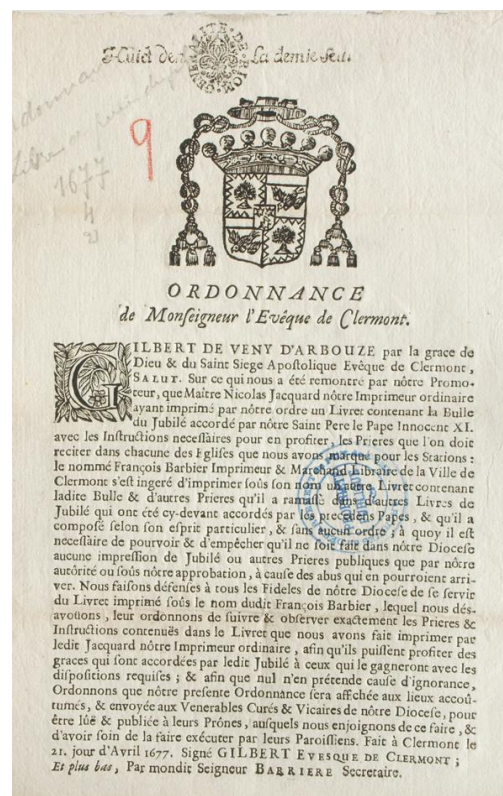 Huict den. La demie feu.
GENERALITE DE RIOM
9
1677
4
21
ORDONNANCE
de Monſeigneur l'Evéque de Clermont.
GILBERT DE VENY D'ARBOUZE par la grace de
Dieu & du Saint Siege Apoſtolique Evêque de Clermont,
SALUT. Sur ce qui nous a été remontré par nôtre Promo-
teur, que Maître Nicolas Jacquard nôtre Imprimeur ordinaire
ayant imprimé par nôtre ordre un Livret contenant la Bulle
du Jubilé accordé par nôtre Saint Pere le Pape Innocent XI.
avec les Inſtructions neceſſaires pour en profiter, les Prieres que l'on doit
reciter dans chacune des Egliſes que nous avons marqué pour les Stations :
le nommé François Barbier Imprimeur & Marchand Libraire de la Ville de
Clermont s'eſt ingeré d'imprimer ſoûs ſon nom un autre Livret contenant
ladite Bulle & d'autres Prieres qu'il a ramaſſé dans d'autres Livres de
Jubilé qui ont été cy-devant accordés par les precedens Papes, & qu'il a
compoſé ſelon ſon eſprit particulier, & ſans aucun ordre ; à quoy il eſt
neceſſaire de pourvoir & d'empêcher qu'il ne ſoit fait dans nôtre Dioceſe
aucune impreſſion de Jubilé ou autres Prieres publiques que par nôtre
autorité ou ſoûs nôtre approbation, à cauſe des abus qui en pourroient arri-
ver. Nous faiſons défenſes à tous les Fideles de nôtre Dioceſe de ſe ſervir
du Livret imprimé ſoûs le nom dudit François Barbier, lequel nous déſ-
avoüons, leur ordonnons de ſuivre & obſerver exactement les Prieres &
Inſtructions contenuës dans le Livret que nous avons fait imprimer par
ledit Jacquard nôtre Imprimeur ordinaire, afin qu'ils puiſſent profiter des
graces qui ſont accordées par ledit Jubilé à ceux qui le gagneront avec les
diſpoſitions requiſes ; & afin que nul n'en prétende cauſe d'ignorance,
Ordonnons que nôtre preſente Ordonnance ſera affichée aux lieux accoû-
tumés, & envoyée aux Venerables Curés & Vicaires de nôtre Dioceſe, pour
être lûë & publiée à leurs Prônes, auſquels nous enjoignons de ce faire, &
d'avoir ſoin de la faire exécuter par leurs Paroiſſiens. Fait à Clermont le
21. jour d'Avril 1677. Signé GILBERT EVESQUE DE CLERMONT ;
Et plus bas, Par mondit Seigneur BARRIERE Secretaire.